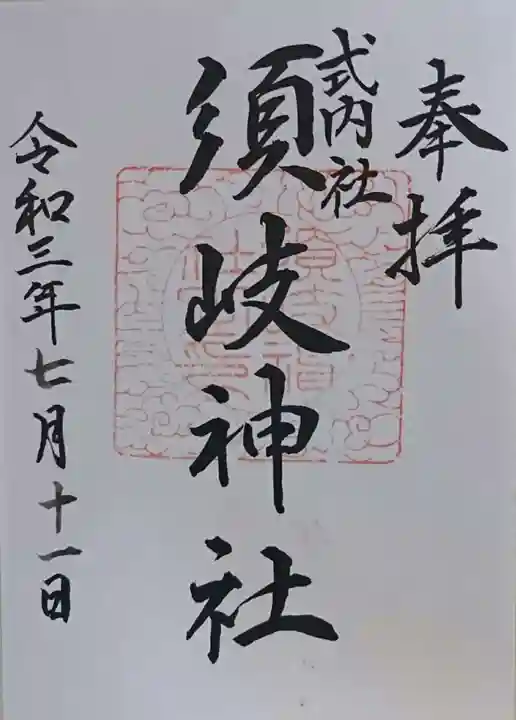 奉拝
式内社
須岐神社
令和三年七月十一日